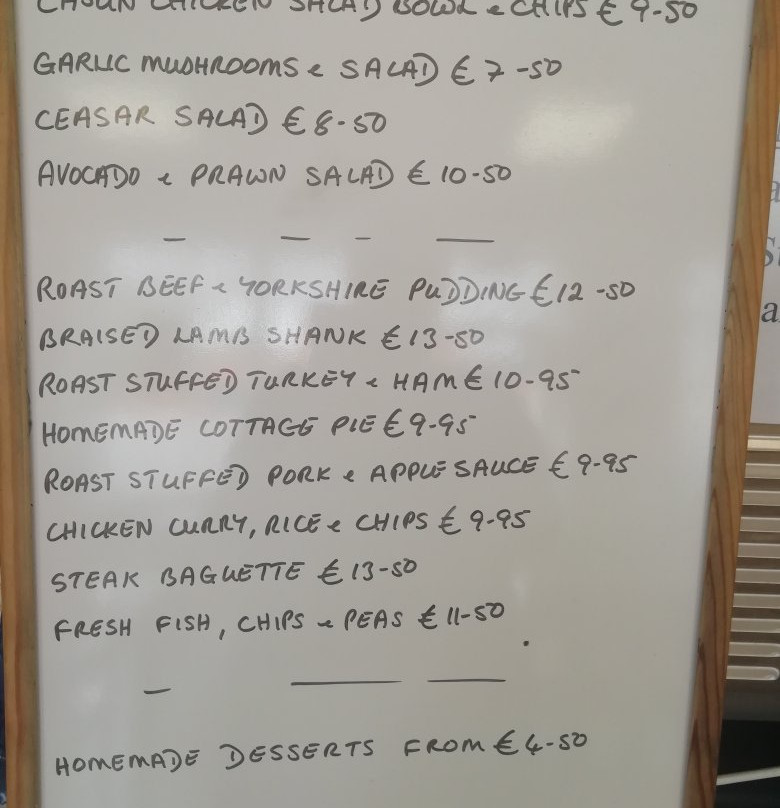 CAJUN CHICKEN SALAD BOWL & CHIPS € 9-50
GARLIC MUSHROOMS & SALAD € 7-50
CEASAR SALAD € 8-50
AVOCADO & PRAWN SALAD € 10-50
ROAST BEEF & YORKSHIRE PUDDING € 12-50
BRAISED LAMB SHANK € 13-50
ROAST STUFFED TURKEY & HAM € 10-95
HOMEMADE COTTAGE PIE € 9-95
ROAST STUFFED PORK & APPLE SAUCE € 9-95
CHICKEN CURRY, RICE & CHIPS € 9-95
STEAK BAGUETTE € 13-50
FRESH FISH, CHIPS & PEAS € 11-50
HOMEMADE DESSERTS FROM € 4-50